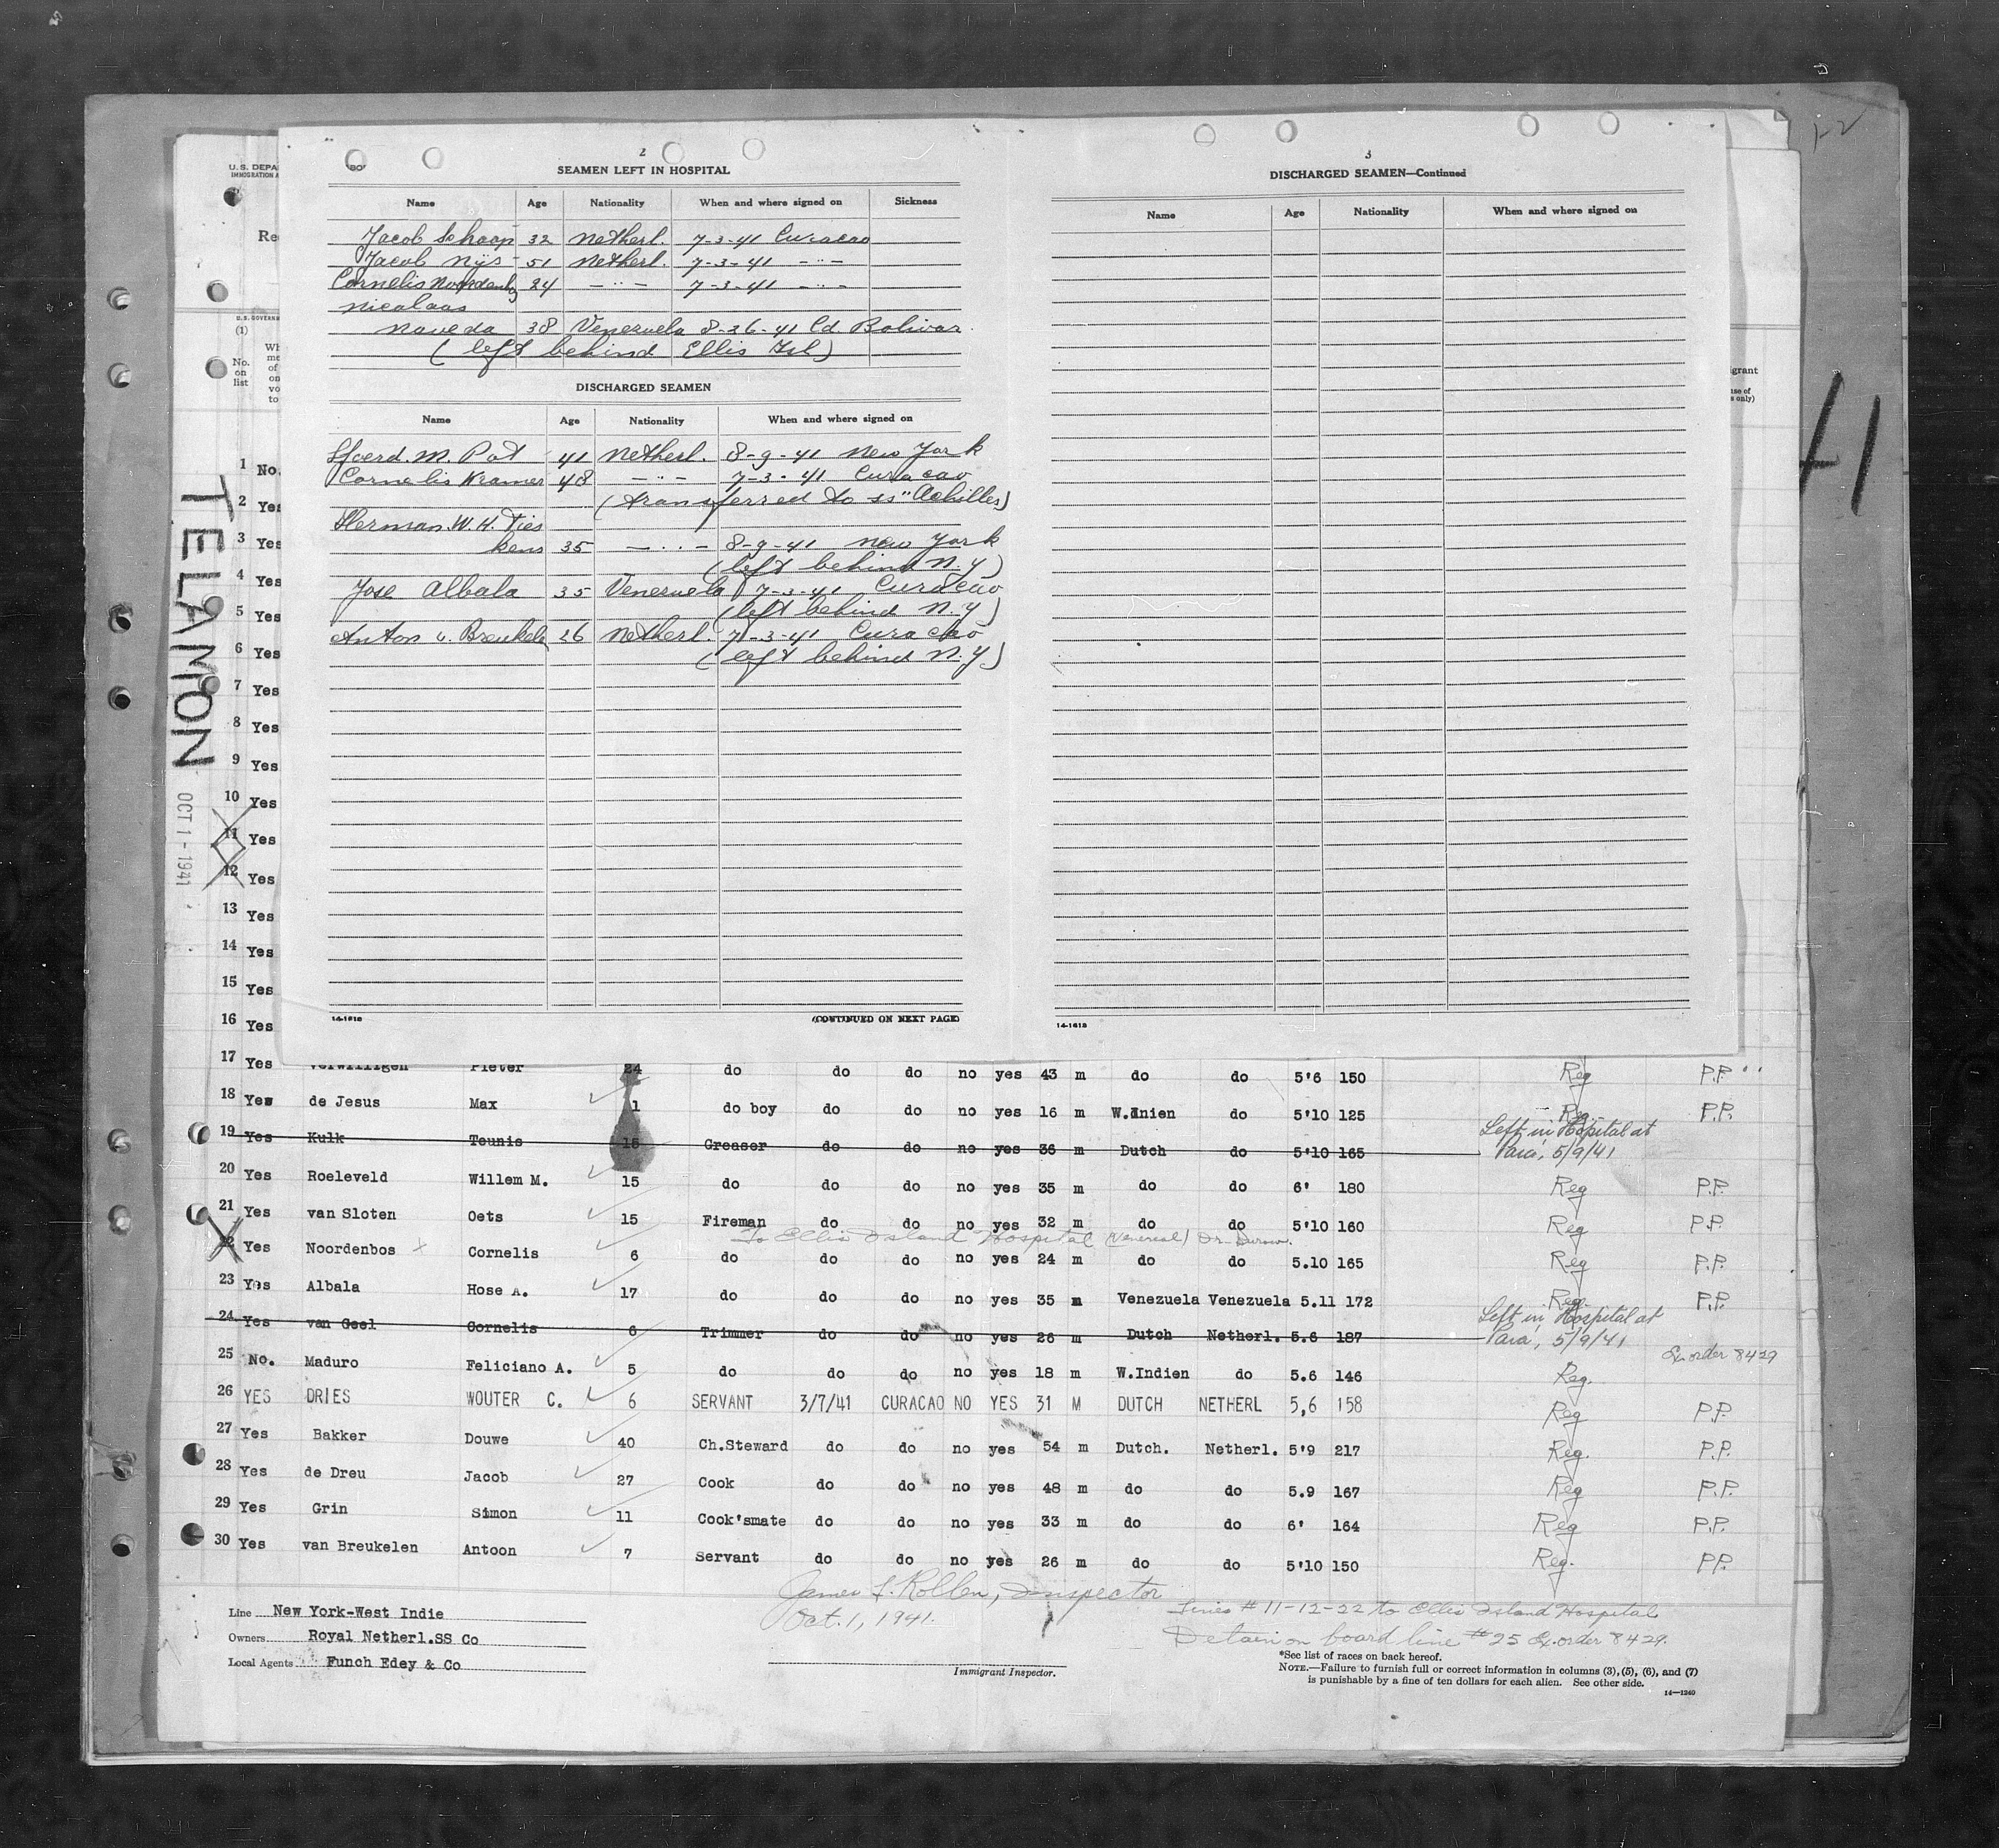 2
SEAMEN LEFT IN HOSPITAL
Name Age Nationality When and where signed on Sickness
Jacob Schaap 32 Netherl. 7-3-41 Curacao
Jacob Nijs 51 Netherl. 7-3-41 -"-
Cornelis Noordenbos 24 -"- 7-3-41 -"-
Nicolaas
Naveda 38 Venezuela 8-26-41 Cd. Bolivar.
(left behind Ellis Isl)
DISCHARGED SEAMEN
Name Age Nationality When and where signed on
Sjoerd. M. Pot 41 Netherl. 8-9-41 New York
Cornelis Kramer 48 -"- 7-3-41 Curacao
(transferred to ss "Achilles)
Herman. W. H. Ties
kens 35 -"- 8-9-41 New York
(left behind N.Y)
Jose Albala 35 Venezuela 7-3-41 Curacao
(left behind N.Y)
Anton v. Breukele 26 Netherl. 7-3-41 Curacao
(left behind N.Y)
14-1618 (CONTINUED ON NEXT PAGE)
3
DISCHARGED SEAMEN—Continued
Name Age Nationality When and where signed on
14-1618
1-2
41
U.S. DEPA
IMMIGRATION A
Re
U.S. GOVERNM
(1)
No. on list
Wh
me
of
on
vo
to
grant
use of
s only)
TELAMON
OCT 1 - 1941
1 No.
2 Yes
3 Yes
4 Yes
5 Yes
6 Yes
7 Yes
8 Yes
9 Yes
10 Yes
11 Yes
12 Yes
13 Yes
14 Yes
15 Yes
16 Yes
17 Yes Verwilligen Pieter 24 do do do no yes 43 m do do 5'6 150 Reg P.P. "
18 Yes de Jesus Max 1 do boy do do no yes 16 m W.Inien do 5'10 125 Reg. P.P.
19 Yes Kulk Teunis 15 Greaser do do no yes 36 m Dutch do 5'10 165 Left in Hospital at Para, 5/9/41
20 Yes Roeleveld Willem M. 15 do do do no yes 35 m do do 6' 180 Reg P.P.
21 Yes van Sloten Oets 15 Fireman do do no yes 32 m do do 5'10 160 Reg P.P.
To Ellis Island Hospital (Venereal) Dr.
22 Yes Noordenbos x Cornelis 6 do do do no yes 24 m do do 5.10 165 Reg P.P.
23 Yes Albala Hose A. 17 do do do no yes 35 m Venezuela Venezuela 5.11 172 Reg. P.P.
24 Yes van Geel Cornelis 6 Trimmer do do no yes 26 m Dutch Netherl. 5.6 187 Left in Hospital at Para, 5/9/41
25 No. Maduro Feliciano A. 5 do do do no yes 18 m W.Indien do 5.6 146 Reg. Ex. order 8429
26 YES DRIES WOUTER C. 6 SERVANT 3/7/41 CURACAO NO YES 31 M DUTCH NETHERL 5,6 158 Reg P.P.
27 Yes Bakker Douwe 40 Ch.Steward do do no yes 54 m Dutch. Netherl. 5'9 217 Reg. P.P.
28 Yes de Dreu Jacob 27 Cook do do no yes 48 m do do 5.9 167 Reg P.P.
29 Yes Grin Simon 11 Cook'smate do do no yes 33 m do do 6' 164 Reg P.P.
30 Yes van Breukelen Antoon 7 Servant do do no yes 26 m do do 5'10 150 Reg. P.P.
James L. Rollen, Inspector
Oct. 1, 1941.
Lines # 11-12-22 to Ellis Island Hospital
Detain on board line #25 Ex. order 8429.
Line New York-West Indie
Owners Royal Netherl.SS Co
Local Agents Funch Edey & Co
Immigrant Inspector.
*See list of races on back hereof.
NOTE.—Failure to furnish full or correct information in columns (3), (5), (6), and (7)
is punishable by a fine of ten dollars for each alien. See other side.
14—1240